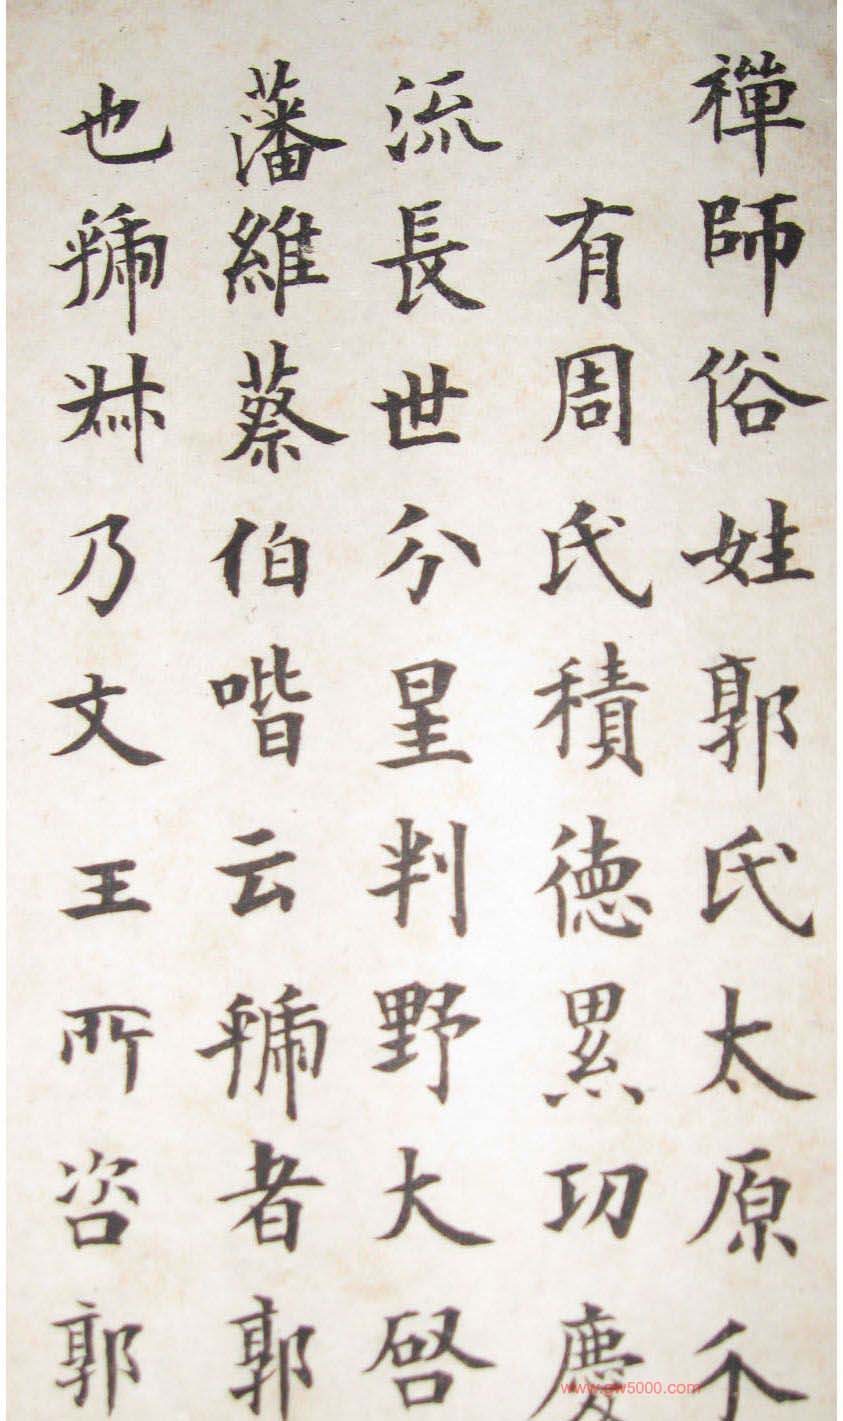 禪師俗姓郭氏太原介
有周氏積德累功慶
流長世分星判野大啓
藩維蔡伯喈云虢者郭
也虢叔乃文王所咨郭
www.gw5000.com